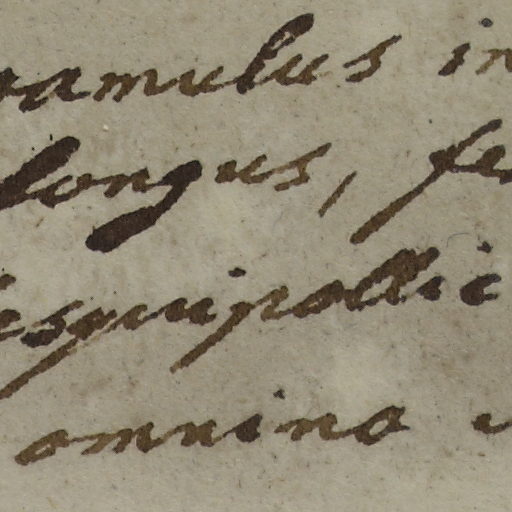 ramulus in
longus, fe
sesquipollic
omnino